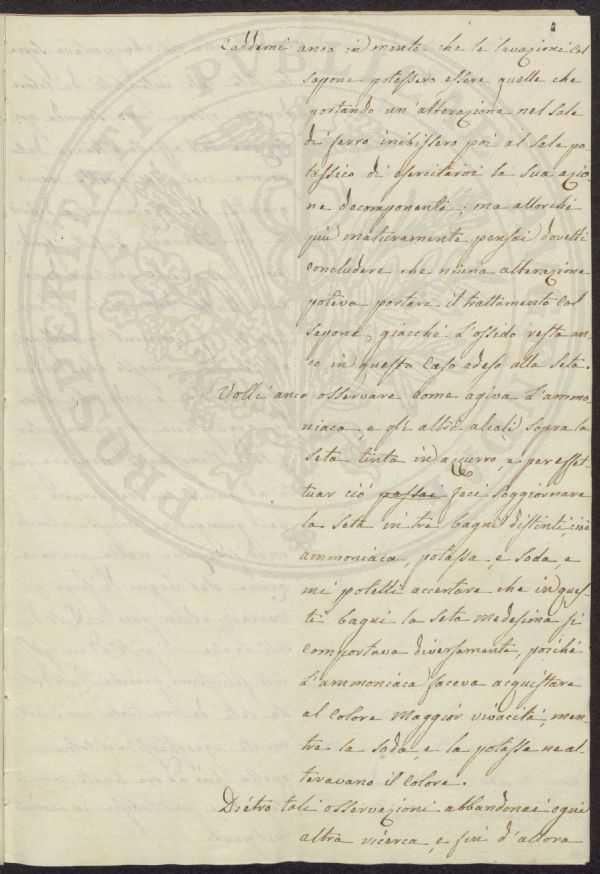 Caddemi anco in mente che le lavazioni col
sapone potessero essere quelle che
portando un'alterazione nel sale
di ferro inibissero poi al sale po-
tassico di esercitarvi la sua azio-
ne decomponente; ma allorché
più maturamente pensai dovetti
concludere che niuna alterazione
poteva portare il trattamento col
sapone, giacché l'ossido resta an-
co in questo caso adeso alla seta.
Volli anco osservare come agiva l'ammo-
niaca, e gli altri alcali sopra la
seta tinta in azzurro, e per effet-
tuar ciò passai feci soggiornare
la seta in tre bagni distinti, cioè
ammoniaca, potassa, e soda, e
mi potetti accertare che in ques-
ti bagni la seta medesima si
comportava diversamente, poiché
l'ammoniaca faceva acquistare
al colore maggior vivacità, men-
tre la soda, e la potassa ne al-
teravano il colore.
Dietro tali osservazioni abbandonai ogni
altra ricerca, e fin d'allora
PROSPERITATI PUBLICAE